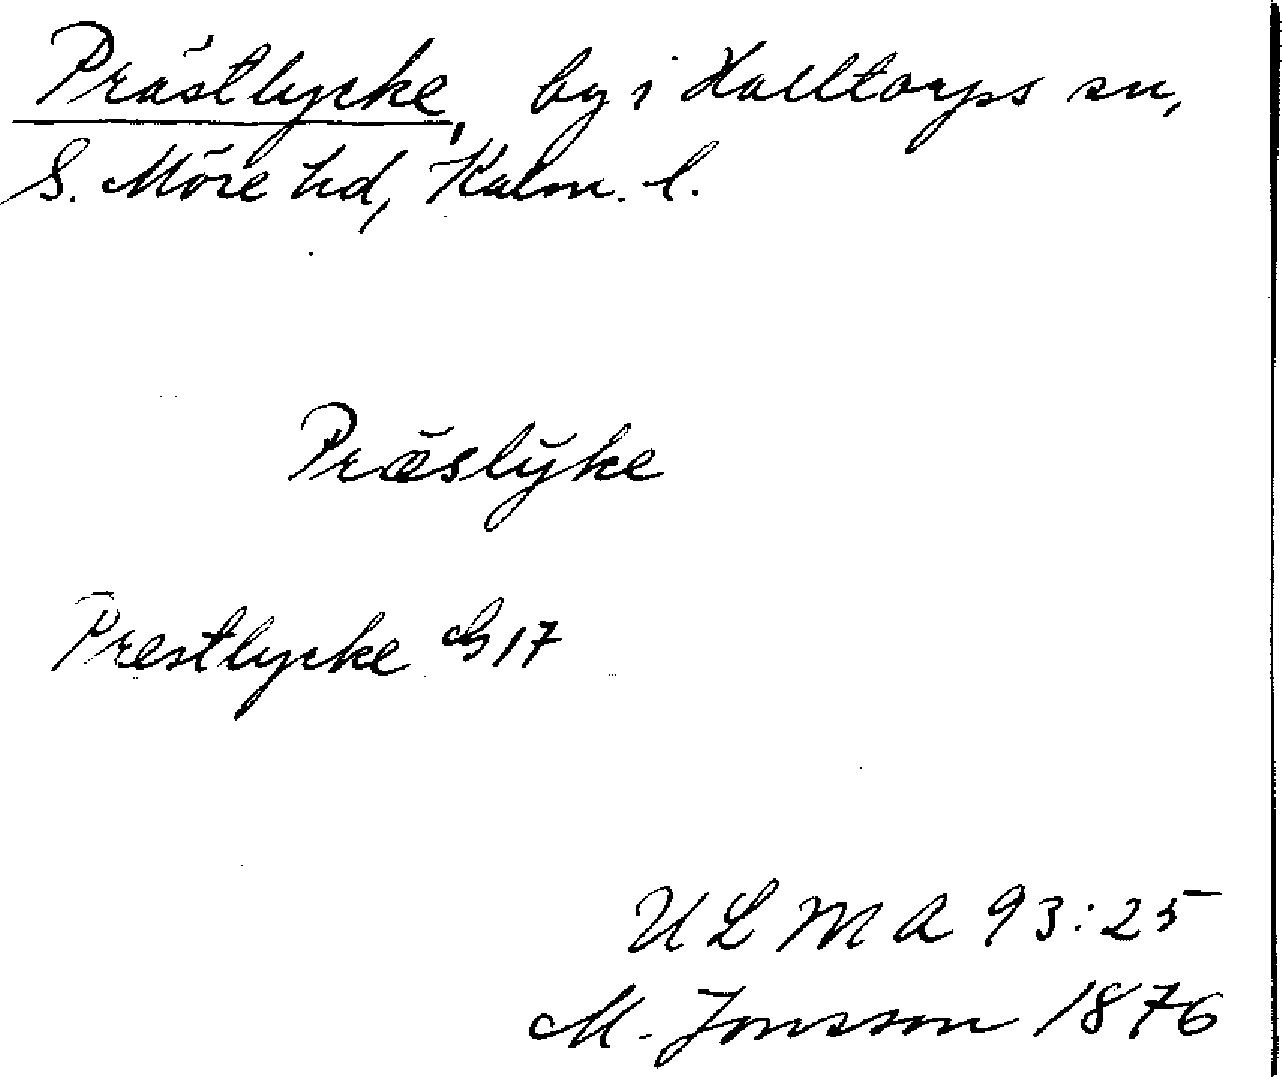 Prästlycke, by i Halltorps sn,
S. Möre hd, Kalm. l.
Præ̆sly̆ke
Prestlycke G 17
ULMA 93:25
M. Jonsson 1876